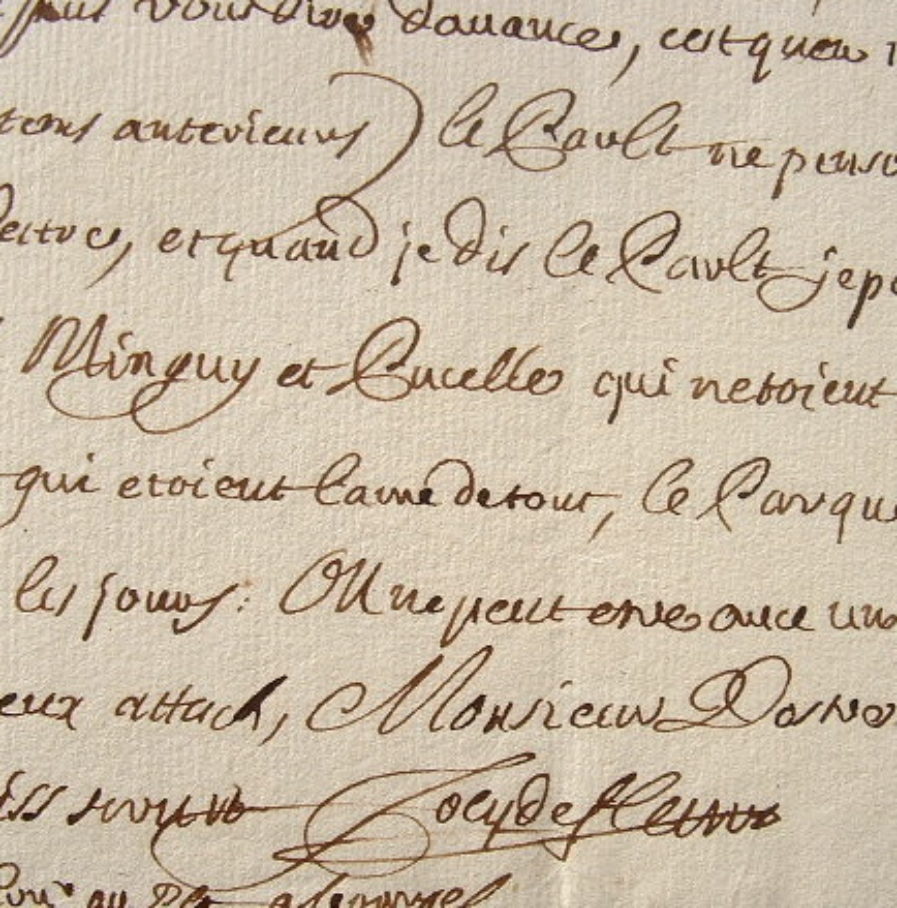 puis vous dire davance, cest quen
tems anterieurs le Parlt ne pens
dettre, et quand je dis le Parlt je p
Minguy et Pucelle qui netoient
qui etoient lame de tout, le Parque
les jours. On ne peut etre avec un
eux attach, Monsieur Dostre
iss servit Joly de fleury
au